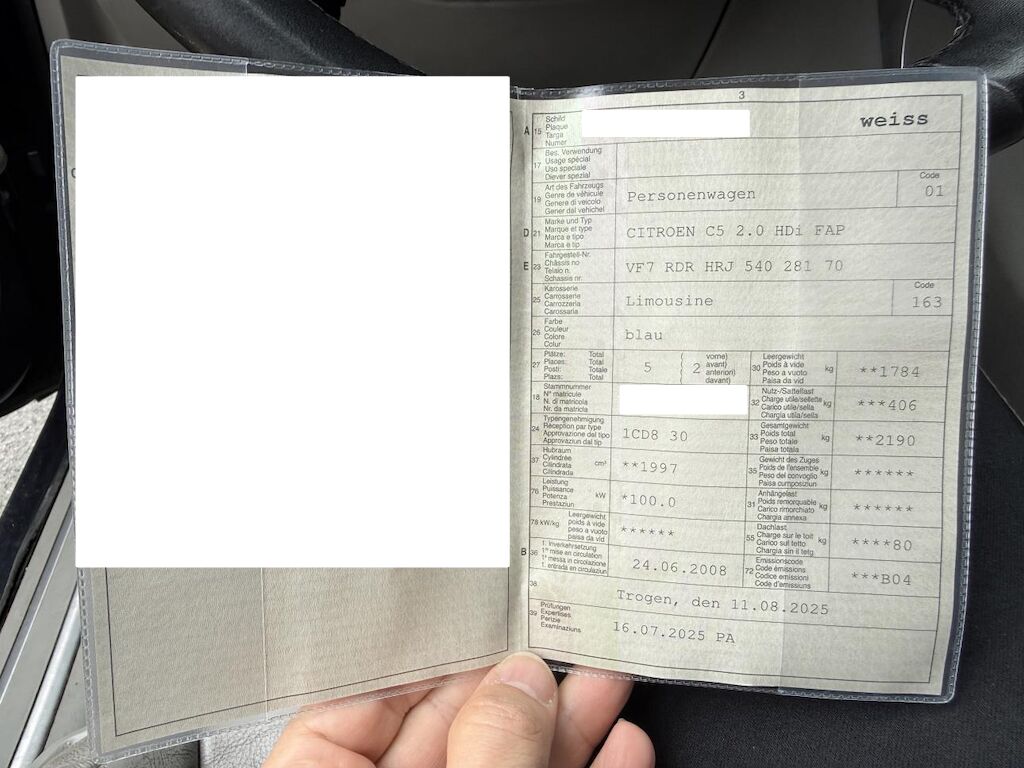 3
A 15 Schild
Plaque
Targa
Numer
weiss
17 Bes. Verwendung
Usage spécial
Uso speciale
Diever spezial
19 Art des Fahrzeugs
Genre de véhicule
Genere di veicolo
Gener dal vehichel
Personenwagen
Code
01
D 21 Marke und Typ
Marque et type
Marca e tipo
Marca e tip
CITROEN C5 2.0 HDi FAP
E 23 Fahrgestell-Nr.
Châssis no
Telaio n.
Schassis nr.
VF7 RDR HRJ 540 281 70
25 Karosserie
Carrosserie
Carrozzeria
Carossaria
Limousine
Code
163
26 Farbe
Couleur
Colore
Colur
blau
27 Plätze: Total
Places: Total
Posti: Totale
Plazs: Total
5
( vorne)
( avant)
( anteriori)
( davant)
2
30 Leergewicht
Poids à vide
Peso a vuoto
Paisa da vid
kg
**1784
18 Stammnummer
N° matricule
N. di matricola
Nr. da matricla
32 Nutz-/Sattellast
Charge utile/sellette
Carico utile/sella
Chargia utila/sella
kg
***406
24 Typengenehmigung
Réception par type
Approvazione del tipo
Approvaziun dal tip
1CD8 30
33 Gesamtgewicht
Poids total
Peso totale
Paisa totala
kg
**2190
37 Hubraum
Cylindrée
Cilindrata
Cilindrada
cm³
**1997
35 Gewicht des Zuges
Poids de l'ensemble
Peso del convoglio
Paisa cumposiziun
kg
******
76 Leistung
Puissance
Potenza
Prestaziun
kW
*100.0
31 Anhängelast
Poids remorquable
Carico rimorchiato
Chargia annexa
kg
******
78 kW/kg Leergewicht
poids à vide
peso a vuoto
paisa da vid
******
55 Dachlast
Charge sur le toit
Carico sul tetto
Chargia sin il tetg
kg
****80
B 36 1. Inverkehrsetzung
1re mise en circulation
1a messa in circolazione
1. entrada en circulaziun
24.06.2008
72 Emissionscode
Code émissions
Codice emissioni
Code d'emissiuns
***B04
38
Trogen, den 11.08.2025
39 Prüfungen
Expertises
Perizie
Examinaziuns
16.07.2025 PA